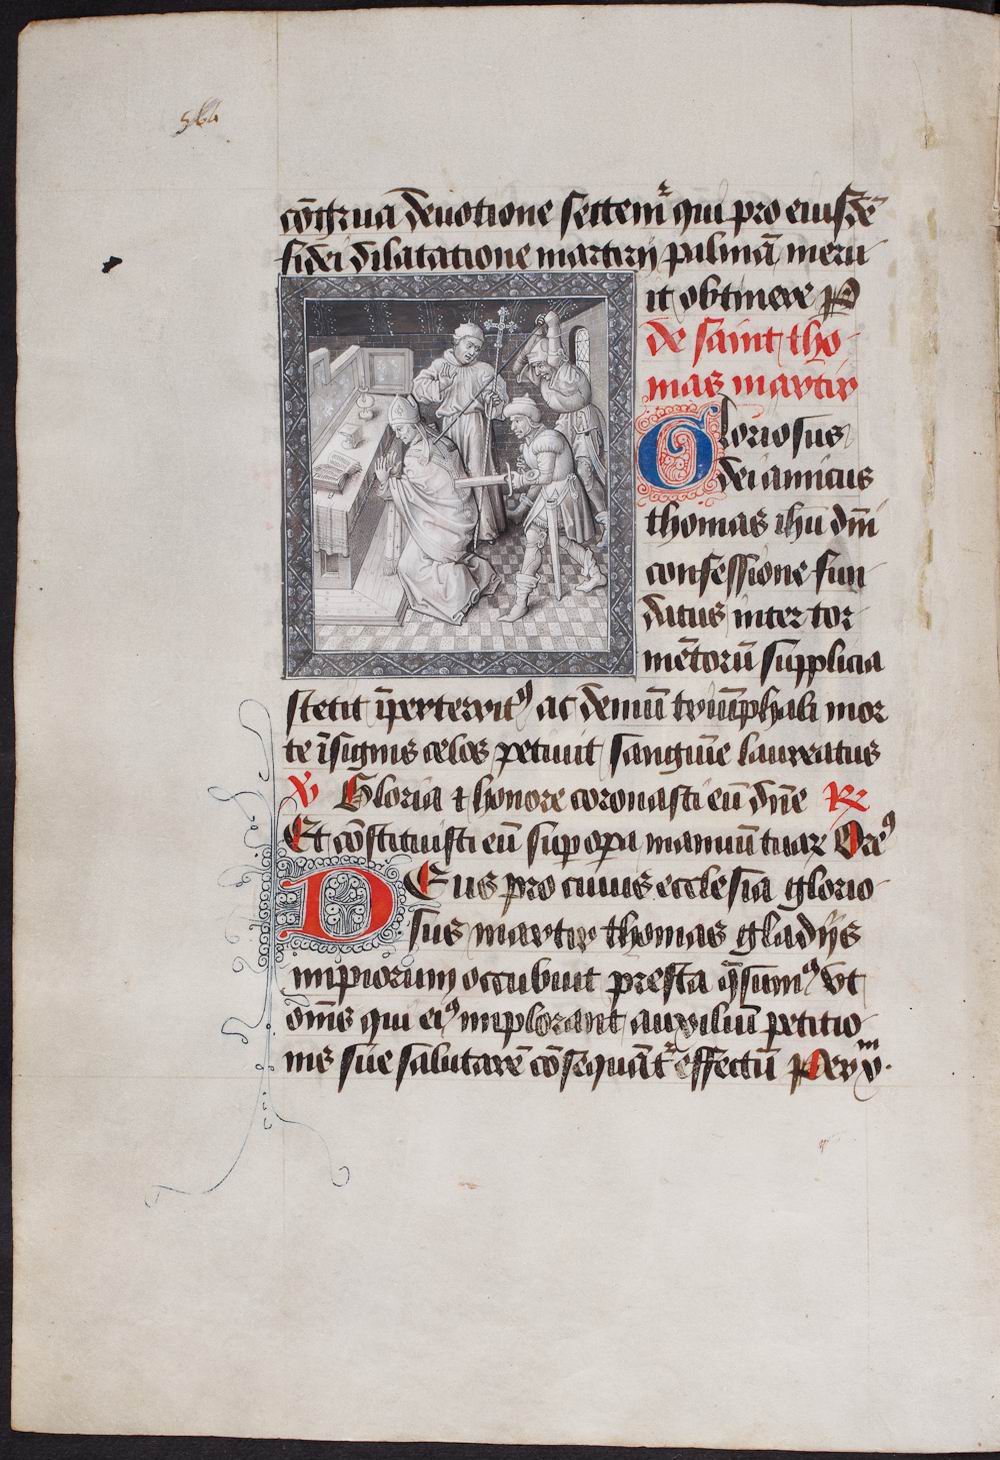 cōgrua deuotione sectemr̄ qui pro eiusdē
fidei dilatatione martirij palmā meru
it obtinere p
de saint tho
mas martir
Gloriosus
dei amicus
thomas ihū dm̄
confessione fun
datus inter tor
mētorū supplicia
stetit īperterritꝰ ac demū triūphali mor
te īsignis celos petiuit sanguīe laureatus
℣ Gloria ⁊ honore coronasti eū dn̄e ℟
Et cōstituisti eū sup opa manuū tuaꝝ Oreꝰ
DEus pro cuius ecclesia glorio
sus martir thomas gladijs
impiorum occubuit presta q̄sumꝰ vt
om̄s qui eiꝰ implorant auxiliū petitio
nis sue salutarē cōsequāt᷑ effectū Per